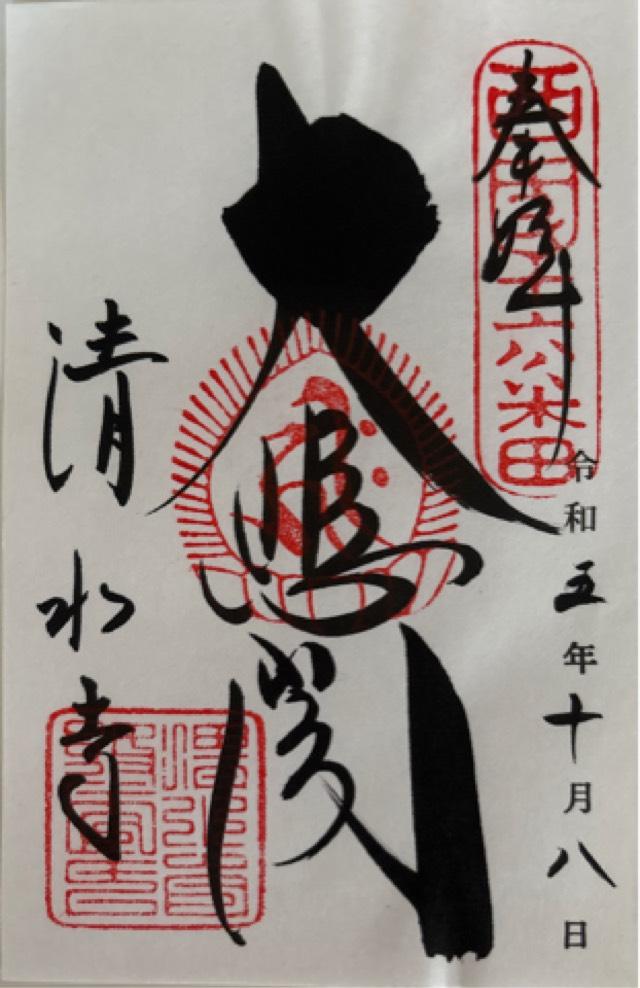 奉拝
西國十六番
令和五年十月八日
大悲閣
清水寺